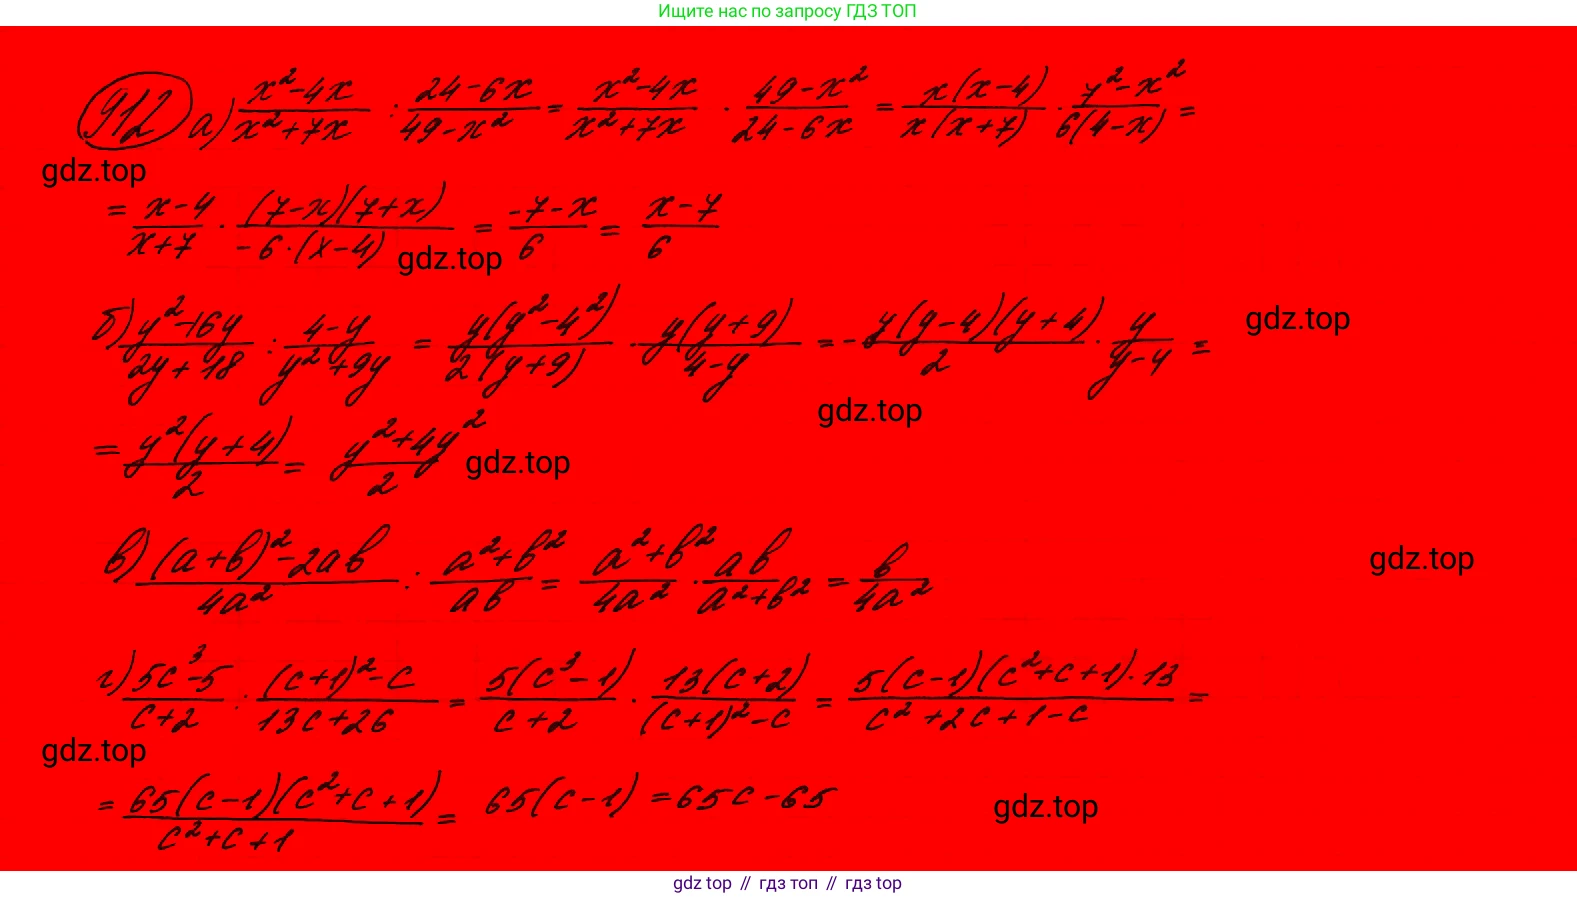 Ищите нас по запросу ГДЗ ТОП
912 а) (x²-4x)/(x²+7x) : (24-6x)/(49-x²) = (x²-4x)/(x²+7x) · (49-x²)/(24-6x) = x(x-4)/x(x+7) · (7²-x²)/6(4-x) =
gdz.top
= (x-4)/(x+7) · (7-x)(7+x)/-6·(x-4) = (-7-x)/6 = (x-7)/6
gdz.top
б) (y²-16y)/(2y+18) : (4-y)/(y²+9y) = y(y²-4²)/2(y+9) · y(y+9)/(4-y) = - y(y-4)(y+4)/2 · y/(y-4) =
gdz.top
gdz.top
= y²(y+4)/2 = (y²+4y²)/2
gdz.top
в) ((a+b)²-2ab)/4a² : (a²+b²)/ab = (a²+b²)/4a² · ab/(a²+b²) = b/4a²
gdz.top
г) (5c³-5)/(c+2) : ((c+1)²-c)/(13c+26) = 5(c³-1)/(c+2) · 13(c+2)/((c+1)²-c) = 5(c-1)(c²+c+1)·13/(c²+2c+1-c) =
gdz.top
= 65(c-1)(c²+c+1)/(c²+c+1) = 65(c-1) = 65c-65
gdz.top
gdz top // гдз топ // гдз top